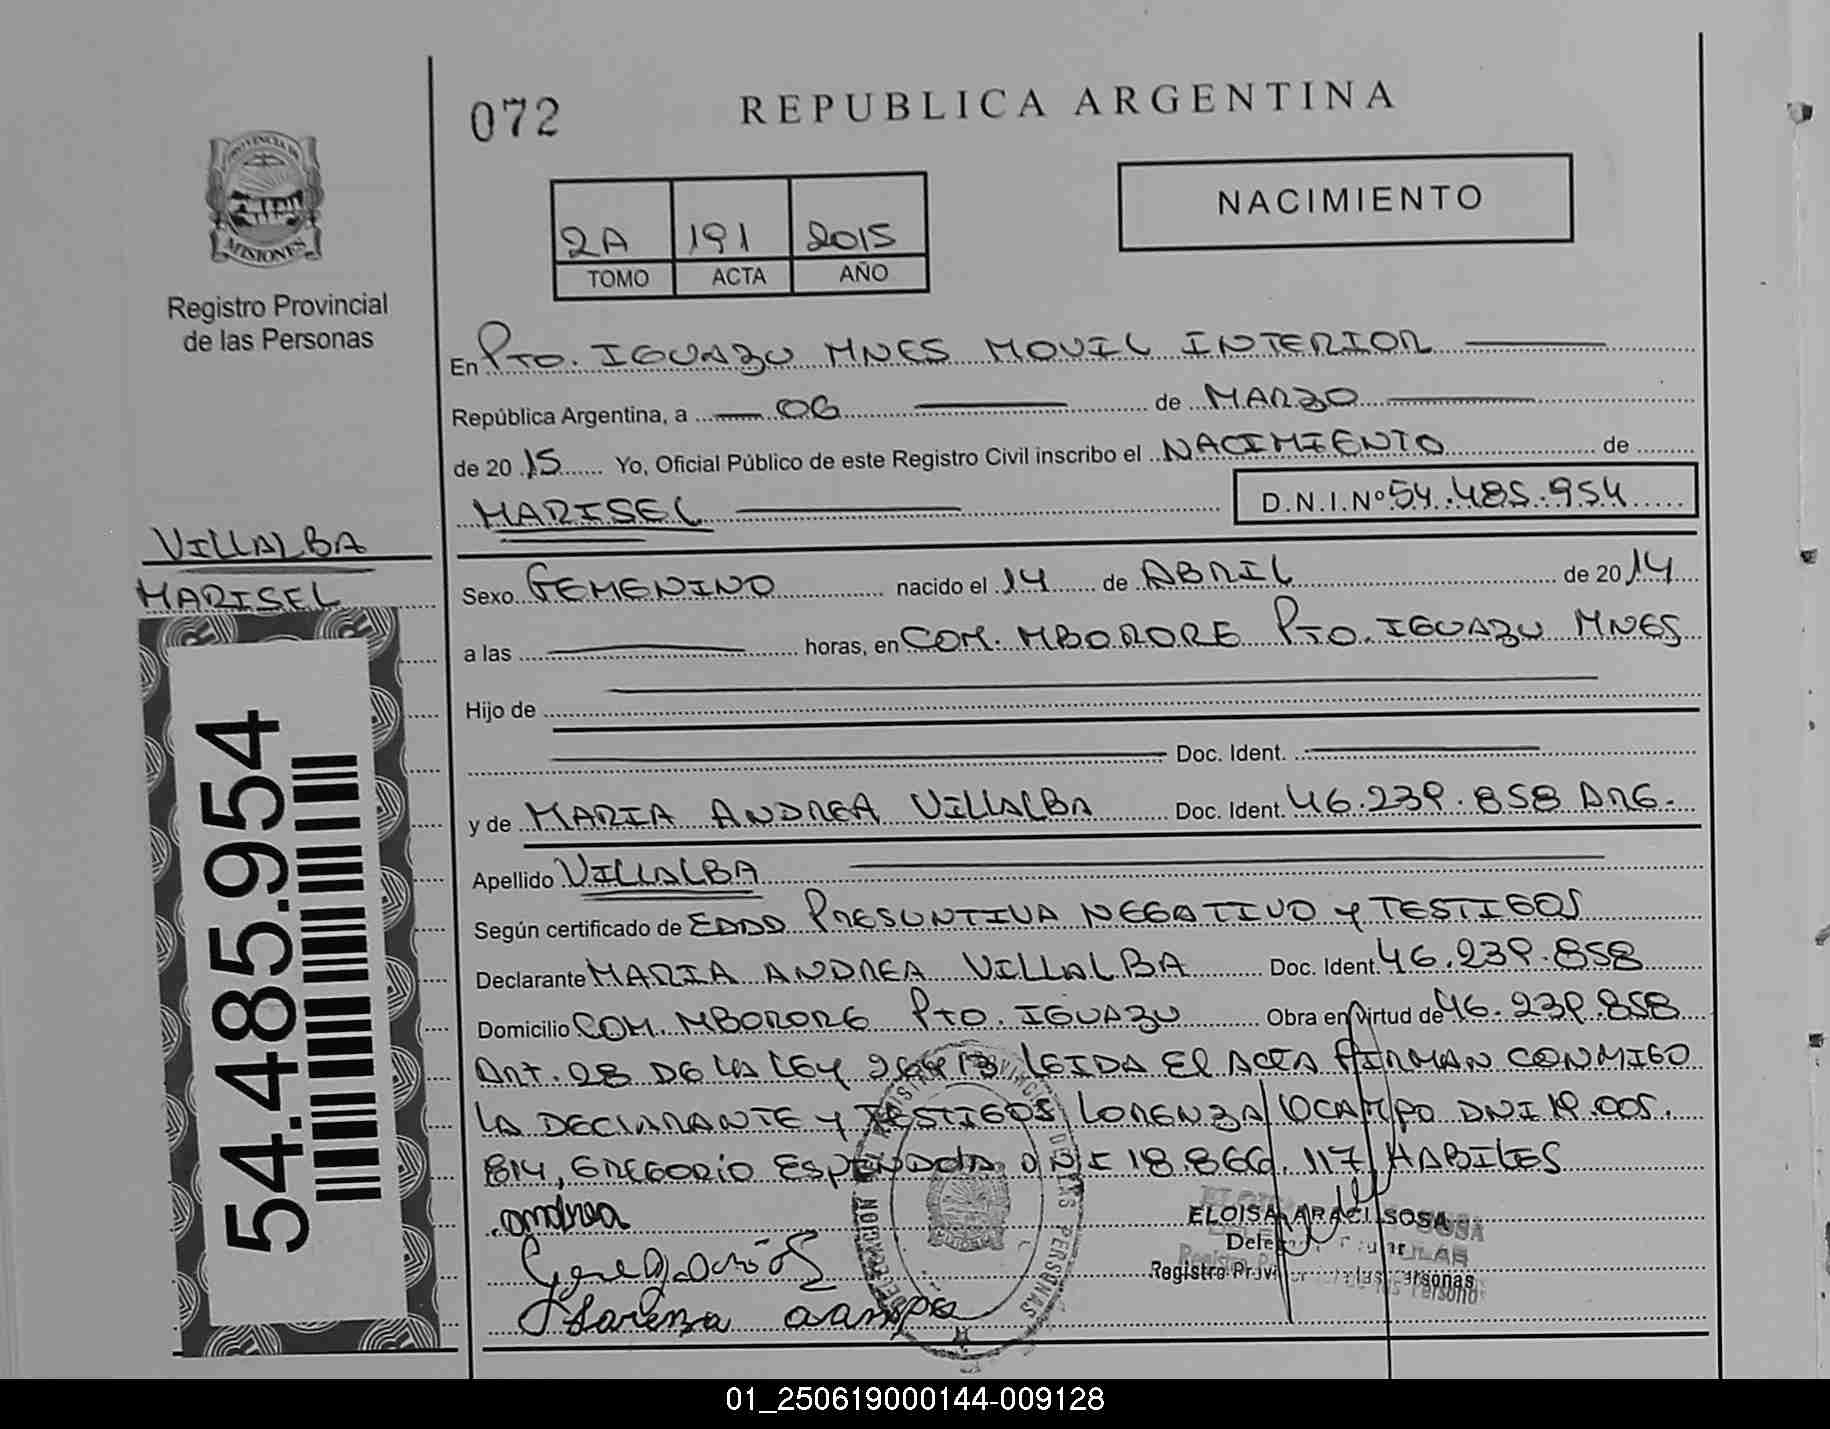 072
REPUBLICA ARGENTINA
PROVINCIA DE
MISIONES
Registro Provincial
de las Personas
2A 191 2015
TOMO ACTA AÑO
NACIMIENTO
En PTO. IGUAZU MNES MOVIL INTERIOR
República Argentina, a 06 de MARZO
de 20 15 Yo, Oficial Público de este Registro Civil inscribo el NACIMIENTO de
MARISEL
D.N.I.Nº 54.485.954
VILLALBA
MARISEL
54.485.954
Sexo FEMENINO nacido el 14 de ABRIL de 20 14
a las horas, en COM. MBORORE PTO. IGUAZU MNES
Hijo de
Doc. Ident.
y de MARIA ANDREA VILLALBA Doc. Ident. 46.239.858 ARG.
Apellido VILLALBA
Según certificado de EDAD PRESUNTIVA NEGATIVO Y TESTIGOS
Declarante MARIA ANDREA VILLALBA Doc. Ident. 46.239.858
Domicilio COM. MBORORE PTO. IGUAZU Obra en virtud de 46.239.858
ART. 28 DE LA LEY 26413 LEIDA El ACTA FIRMAN CONMIGO
LA DECLARANTE Y TESTIGOS LORENZA OCAMPO DNI 19.005.
814, GREGORIO ESPINDOLA DNI 18.866.117 HABILES
andrea
ELOISA ARACI SOSA
Registro Provi las Personas
01_250619000144-009128